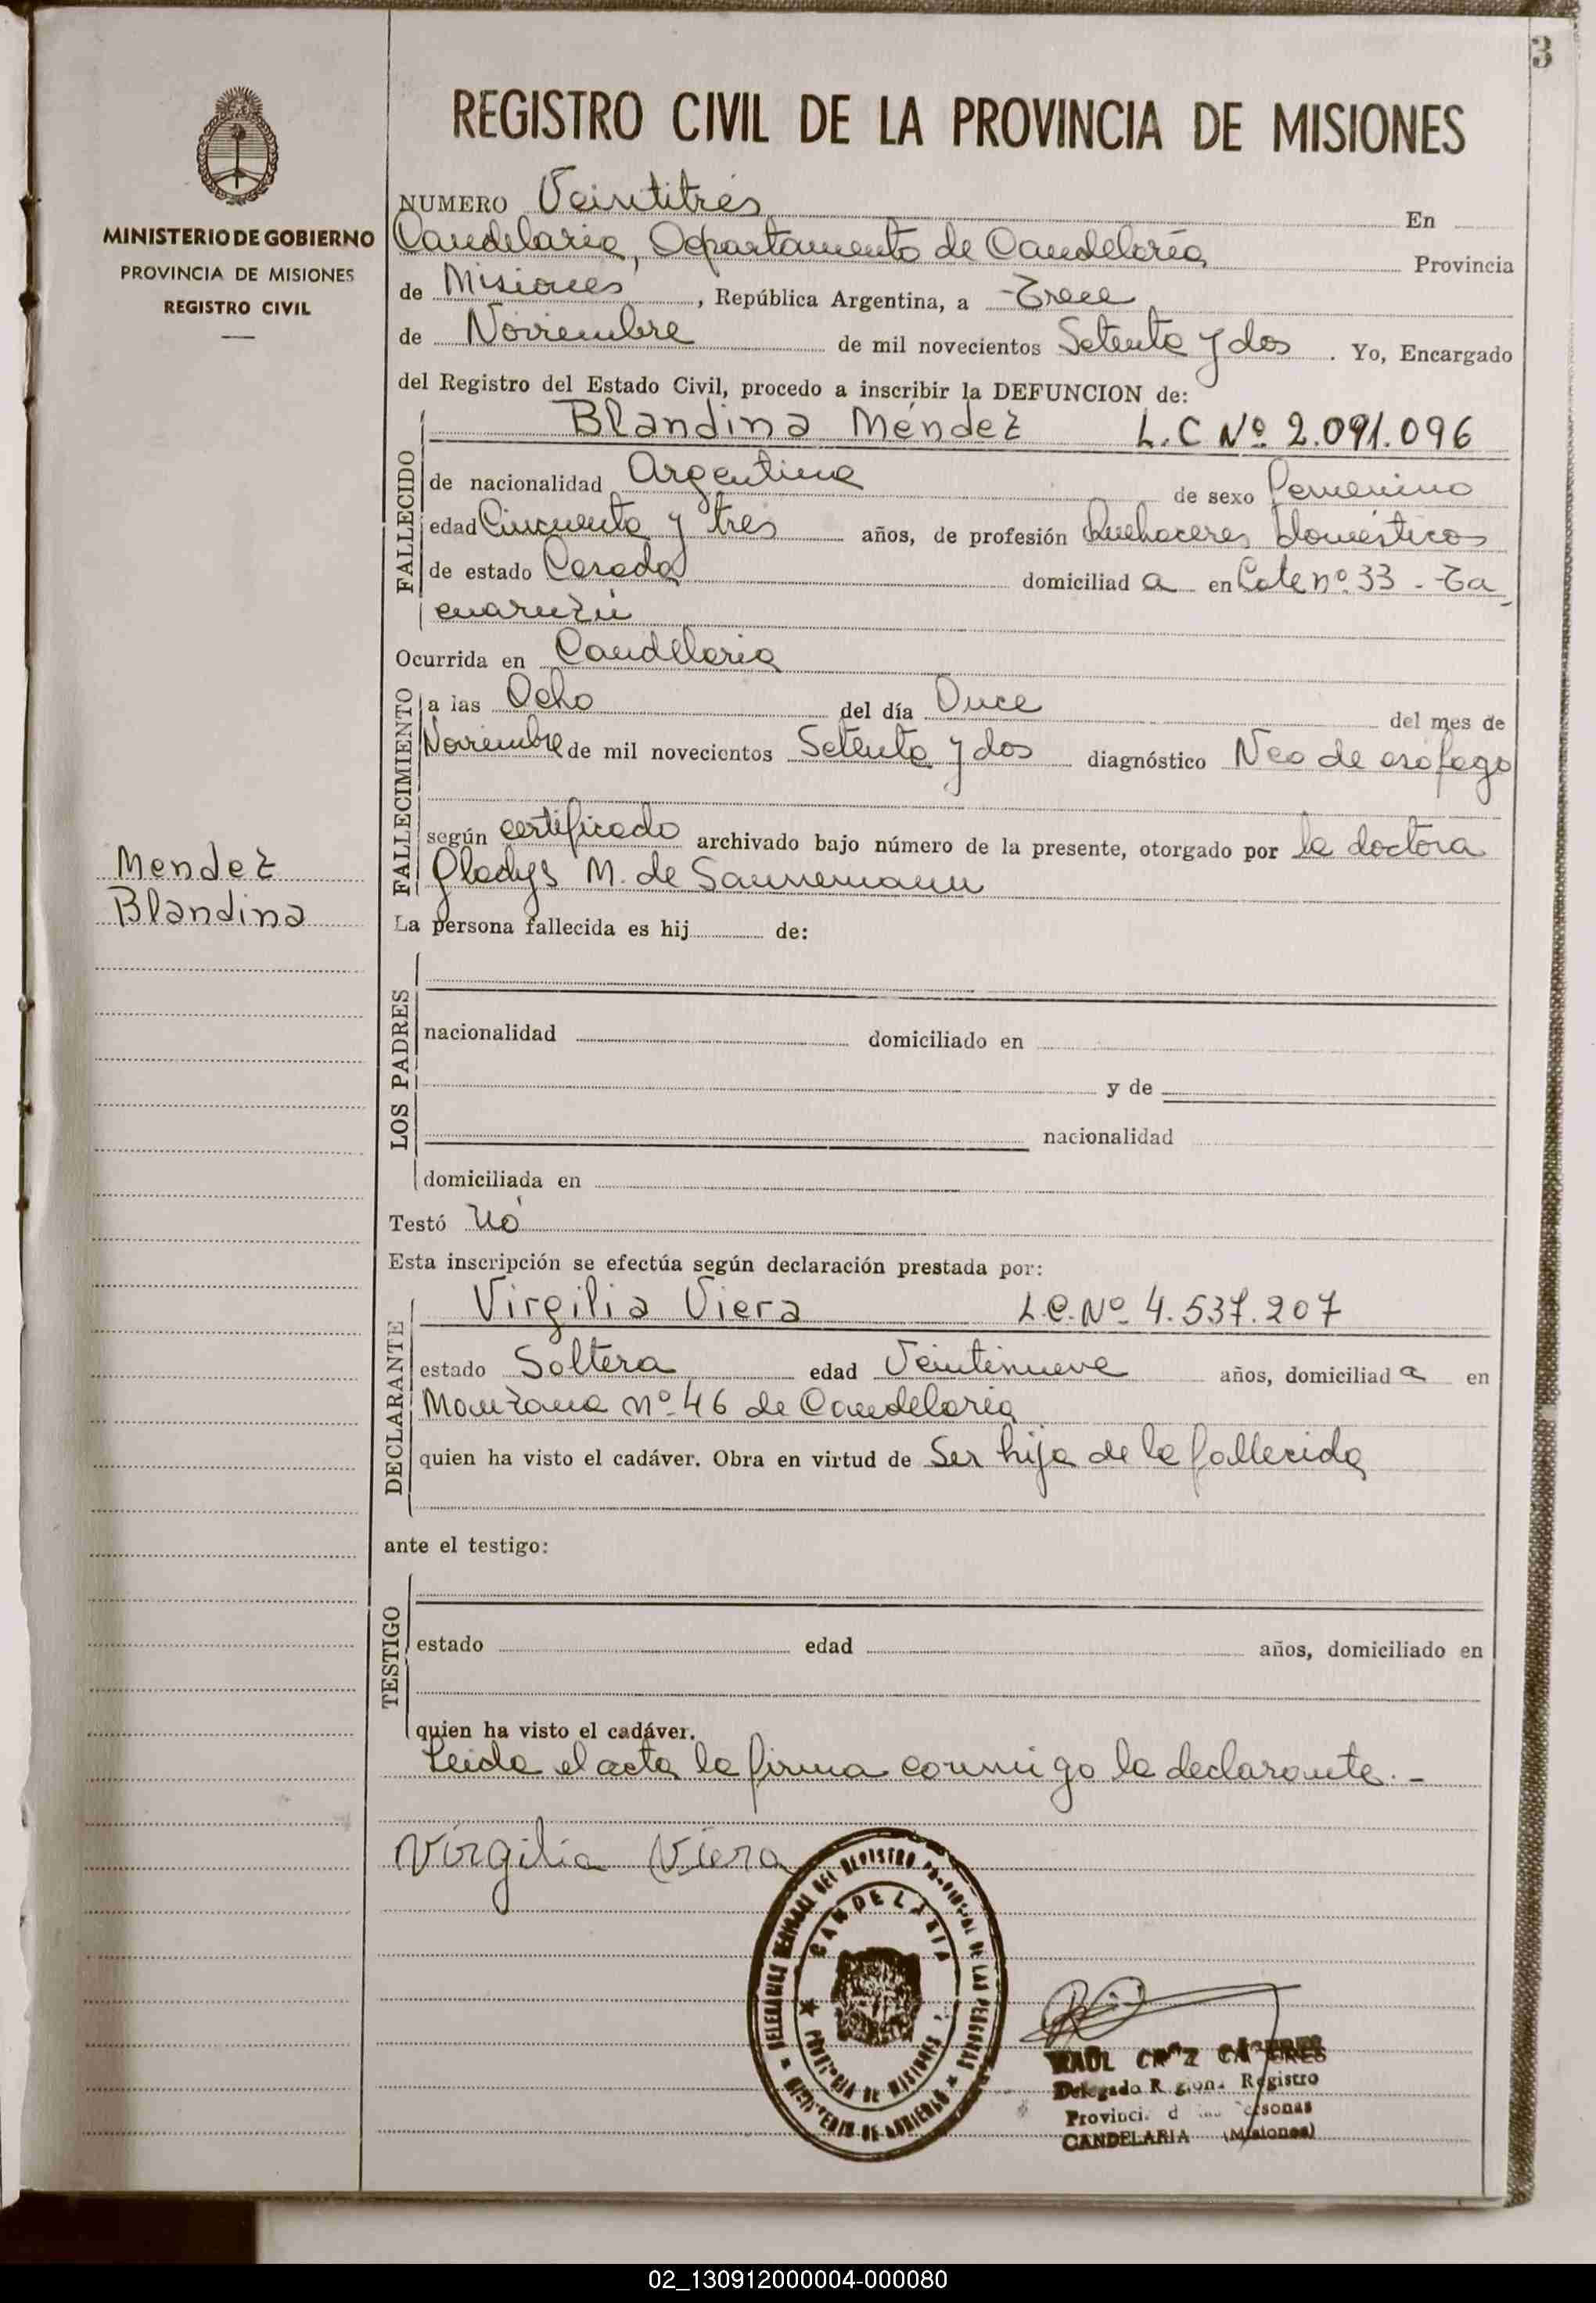 3
REGISTRO CIVIL DE LA PROVINCIA DE MISIONES
MINISTERIO DE GOBIERNO
PROVINCIA DE MISIONES
REGISTRO CIVIL
NUMERO Veintitrés En
Candelaria, Departamento de Candelaria Provincia
de Misiones, República Argentina, a Trece
de Noviembre de mil novecientos Setenta y dos. Yo, Encargado
del Registro del Estado Civil, procedo a inscribir la DEFUNCION de:
FALLECIDO
Blandina Méndez L.C Nº 2.091.096
de nacionalidad Argentina de sexo femenino
edad Cincuenta y tres años, de profesión Quehaceres Domésticos
de estado Casada domiciliad a en Lote nº 33 - Ta
cuaruzú
Ocurrida en Candelaria
FALLECIMIENTO
a las Ocho del día Once del mes de
Noviembre de mil novecientos Setenta y dos diagnóstico Neo de esófago
según certificado archivado bajo número de la presente, otorgado por la doctora
Gladys M. de Sannemann
Mendez
Blandina
La persona fallecida es hij de:
LOS PADRES
nacionalidad domiciliado en
y de
nacionalidad
domiciliada en
Testó Nó
Esta inscripción se efectúa según declaración prestada por:
DECLARANTE
Virgilia Viera L.C. Nº 4.537.207
estado Soltera edad Veintinueve años, domiciliad a en
Manzana nº 46 de Candelaria
quien ha visto el cadáver. Obra en virtud de Ser hija de la fallecida
ante el testigo:
TESTIGO
estado edad años, domiciliado en
quien ha visto el cadáver.
Leida el acta la firma conmigo la declarante.-
Virgilia Viera
CANDELARIA
PROVINCIA DE MISIONES
MINISTERIO DE GOBIERNO
RAUL
Delegado Registro
CANDELARIA (Misiones)
02_130912000004-000080